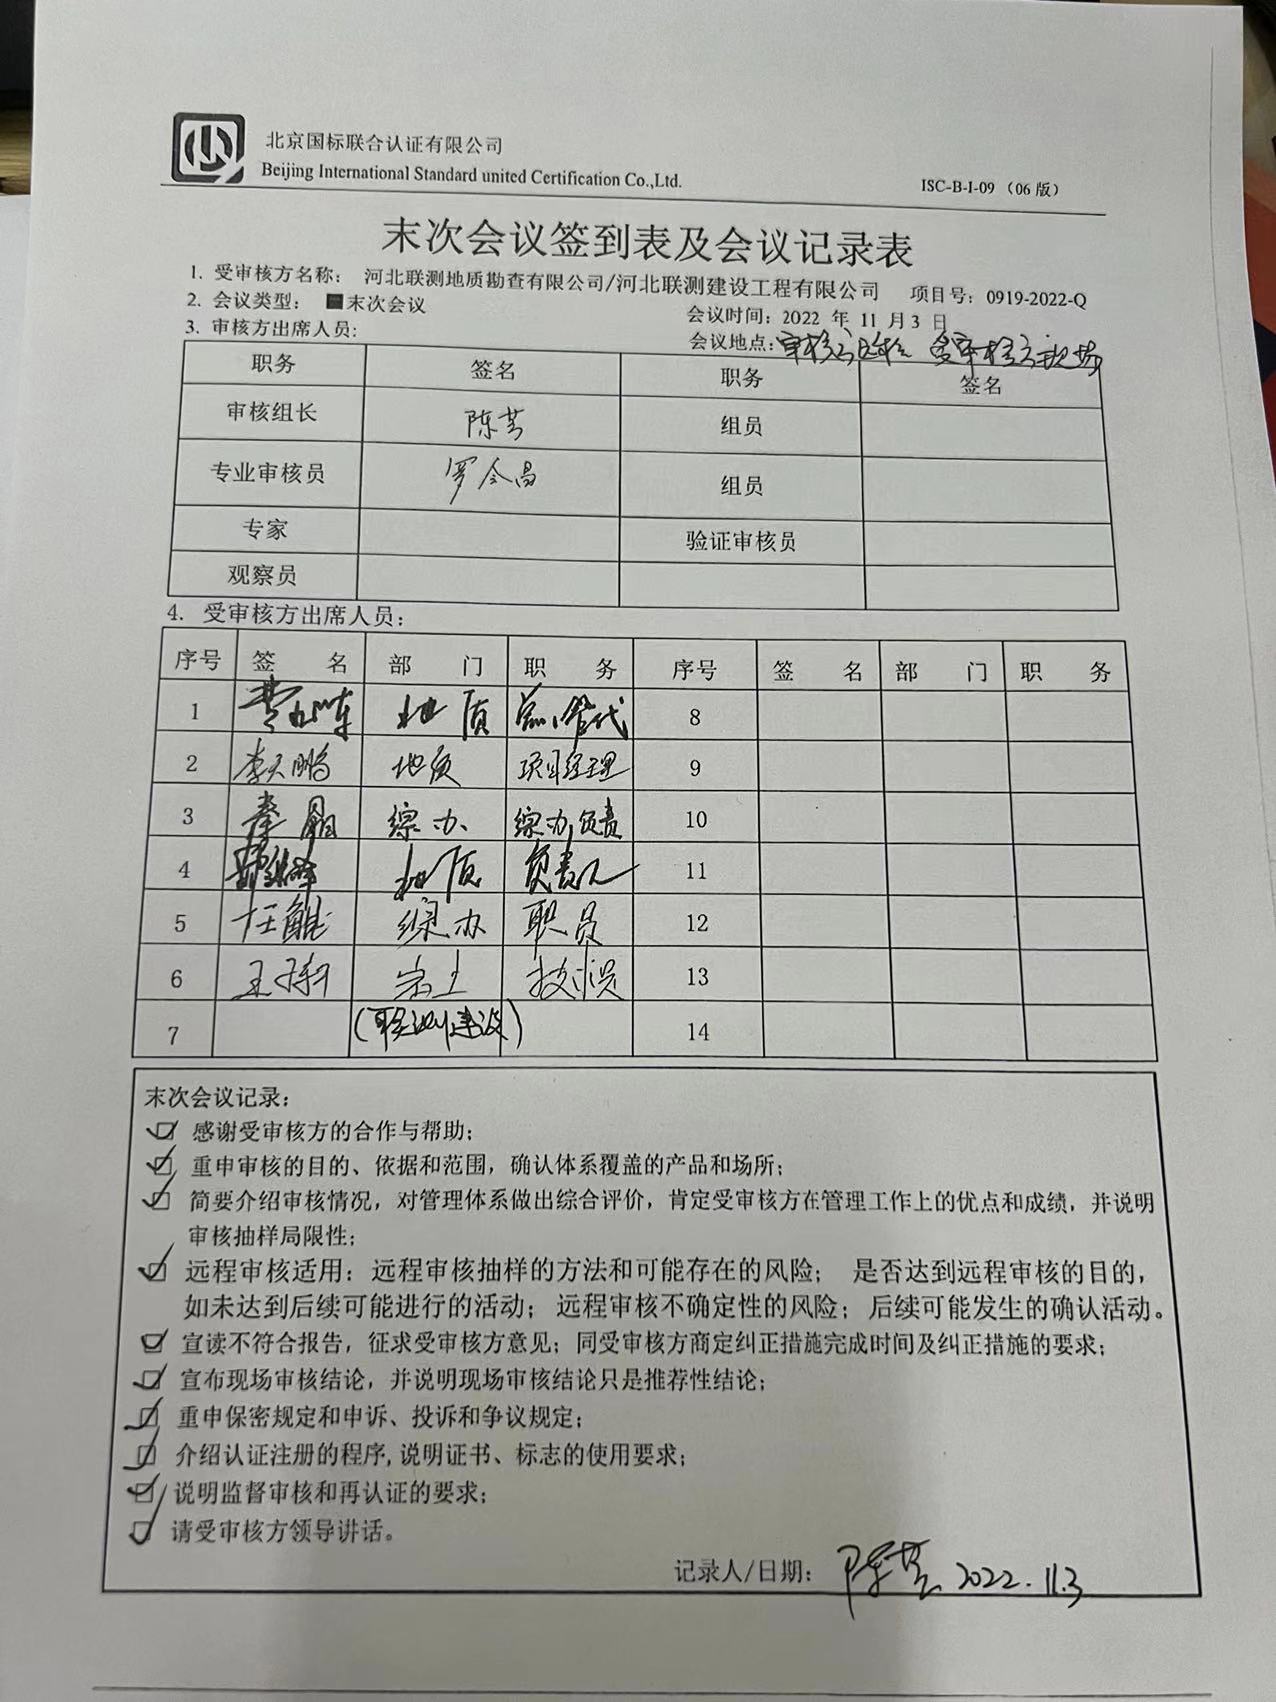 北京国标联合认证有限公司
Beijing International Standard united Certification Co.,Ltd.
ISC-B-I-09（06 版）
末次会议签到表及会议记录表
1. 受审核方名称： 河北联测地质勘查有限公司/河北联测建设工程有限公司 项目号：0919-2022-Q
2. 会议类型： ■末次会议 会议时间：2022 年 11 月 3 日
3. 审核方出席人员: 会议地点: 受审核方现场
职务 签名 职务 签名
审核组长 陈芳 组员
专业审核员 罗令昌 组员
专家 验证审核员
观察员
4. 受审核方出席人员:
序号 签 名 部 门 职 务 序号 签 名 部 门 职 务
1 地质 管代 8
2 李天鹏 地质 项目经理 9
3 综办 综办负责 10
4 地质 负责人 11
5 综办 职员 12
6 岩土 13
7 (联测建设) 14
末次会议记录:
感谢受审核方的合作与帮助;
重申审核的目的、依据和范围，确认体系覆盖的产品和场所;
简要介绍审核情况，对管理体系做出综合评价，肯定受审核方在管理工作上的优点和成绩，并说明
审核抽样局限性;
远程审核适用：远程审核抽样的方法和可能存在的风险； 是否达到远程审核的目的，
如未达到后续可能进行的活动；远程审核不确定性的风险；后续可能发生的确认活动。
宣读不符合报告，征求受审核方意见；同受审核方商定纠正措施完成时间及纠正措施的要求;
宣布现场审核结论，并说明现场审核结论只是推荐性结论;
重申保密规定和申诉、投诉和争议规定;
介绍认证注册的程序,说明证书、标志的使用要求;
说明监督审核和再认证的要求;
请受审核方领导讲话。
记录人/日期: 陈芳 2022.11.3